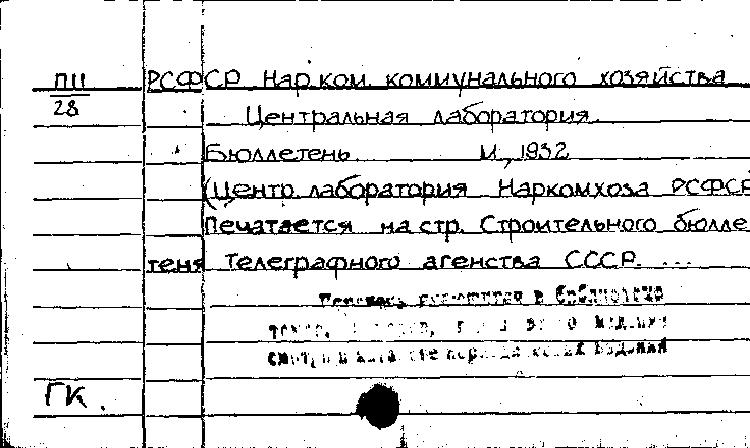 П11 РСФСР Нар.ком. коммунального хозяйства
28 Центральная лаборатория.
Бюллетень М., 1932
(Центр. лаборатория Наркомхоза РСФСР
Печатается на стр. Строительного бюлле
теня Телеграфного агенства СССР. ...
в библиотеке
смотри в каталоге изданий
ГК.